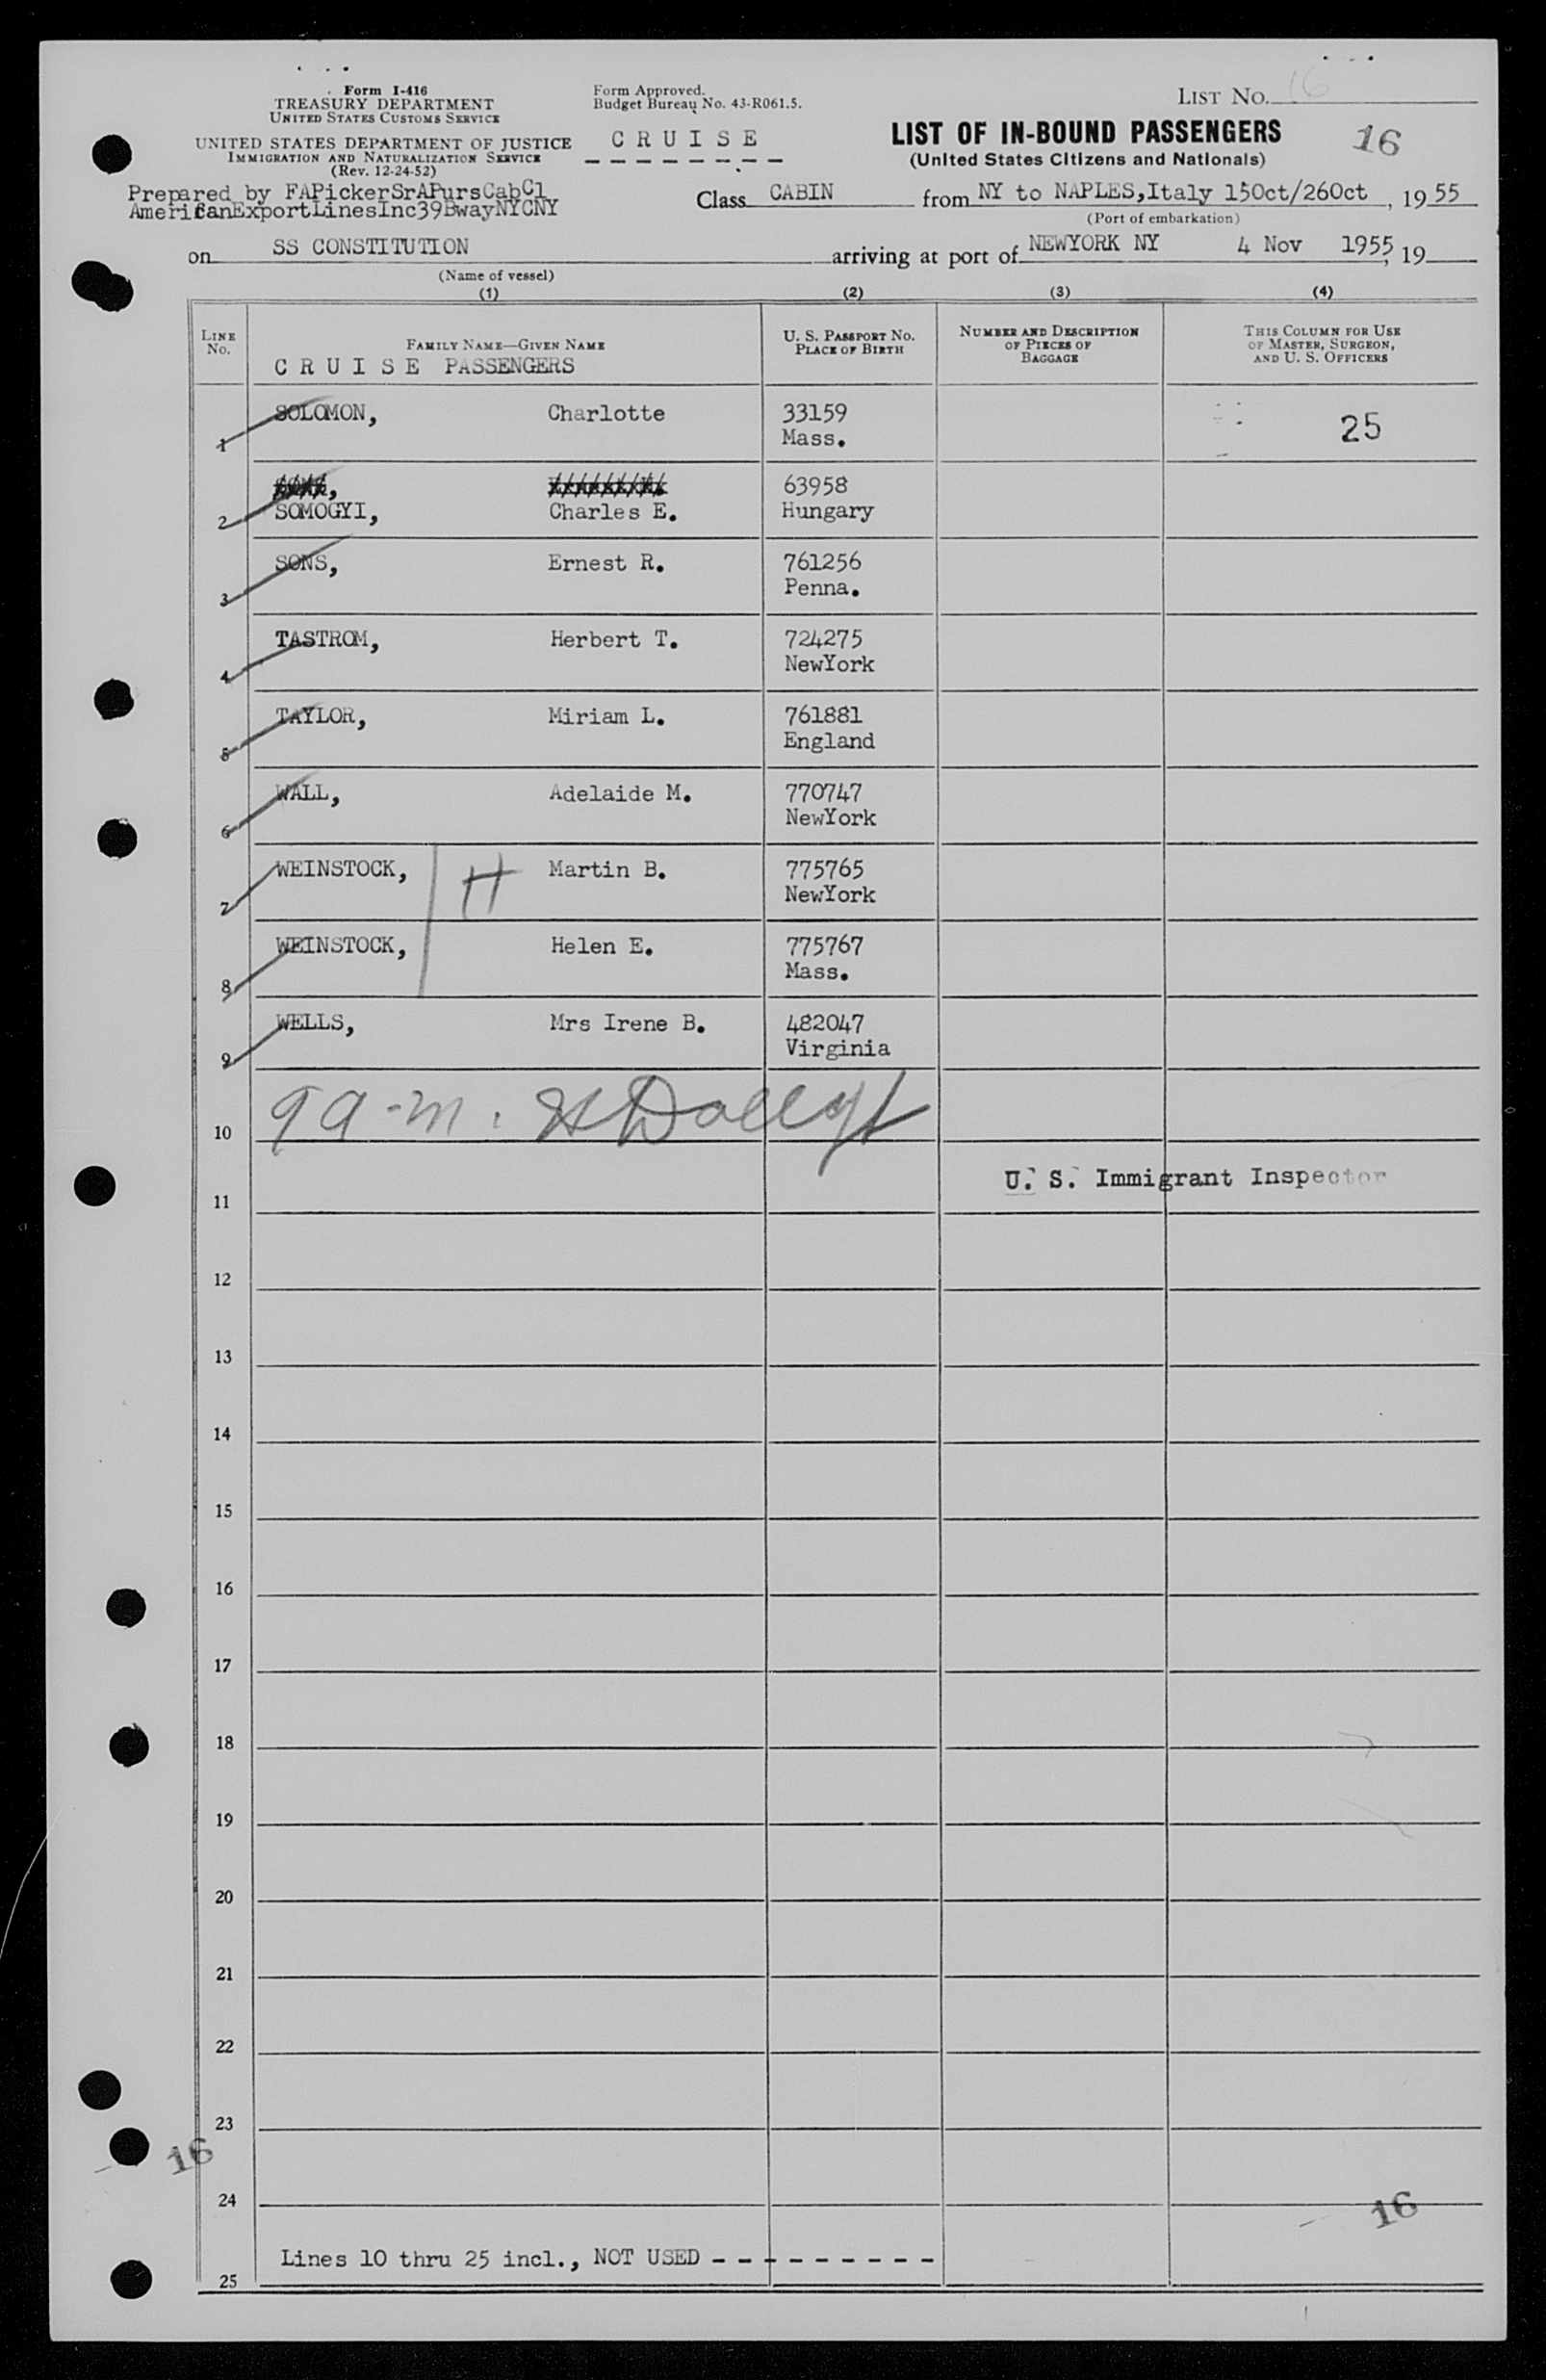 Form I-416
TREASURY DEPARTMENT
UNITED STATES CUSTOMS SERVICE
UNITED STATES DEPARTMENT OF JUSTICE
IMMIGRATION AND NATURALIZATION SERVICE
(Rev. 12-24-52)
Form Approved.
Budget Bureau No. 43-R061.5.
C R U I S E
LIST NO. 16
LIST OF IN-BOUND PASSENGERS
16
(United States Citizens and Nationals)
Prepared by FAPickerSrAPursCabCl
AmericanExportLinesInc39BwayNYCNY
Class CABIN from NY to NAPLES,Italy 15Oct/26Oct, 19 55
(Port of embarkation)
on SS CONSTITUTION arriving at port of NEWYORK NY 4 Nov 1955, 19
(Name of vessel)
(1) (2) (3) (4)
LINE NO.
FAMILY NAME—GIVEN NAME
C R U I S E PASSENGERS
U. S. PASSPORT NO.
PLACE OF BIRTH
NUMBER AND DESCRIPTION
OF PIECES OF
BAGGAGE
THIS COLUMN FOR USE
OF MASTER, SURGEON,
AND U. S. OFFICERS
1 SOLOMON, Charlotte 33159
Mass.
25
63958
2 SOMOGYI, Charles E. Hungary
3 SONS, Ernest R. 761256
Penna.
4 TASTROM, Herbert T. 724275
NewYork
5 TAYLOR, Miriam L. 761881
England
6 WALL, Adelaide M. 770747
NewYork
7 WEINSTOCK, H Martin B. 775765
NewYork
8 WEINSTOCK, Helen E. 775767
Mass.
9 WELLS, Mrs Irene B. 482047
Virginia
10
U. S. Immigrant Inspector
11
12
13
14
15
16
17
18
19
20
21
22
23
16
24
16
Lines 10 thru 25 incl., NOT USED - - - - - - - - -
25